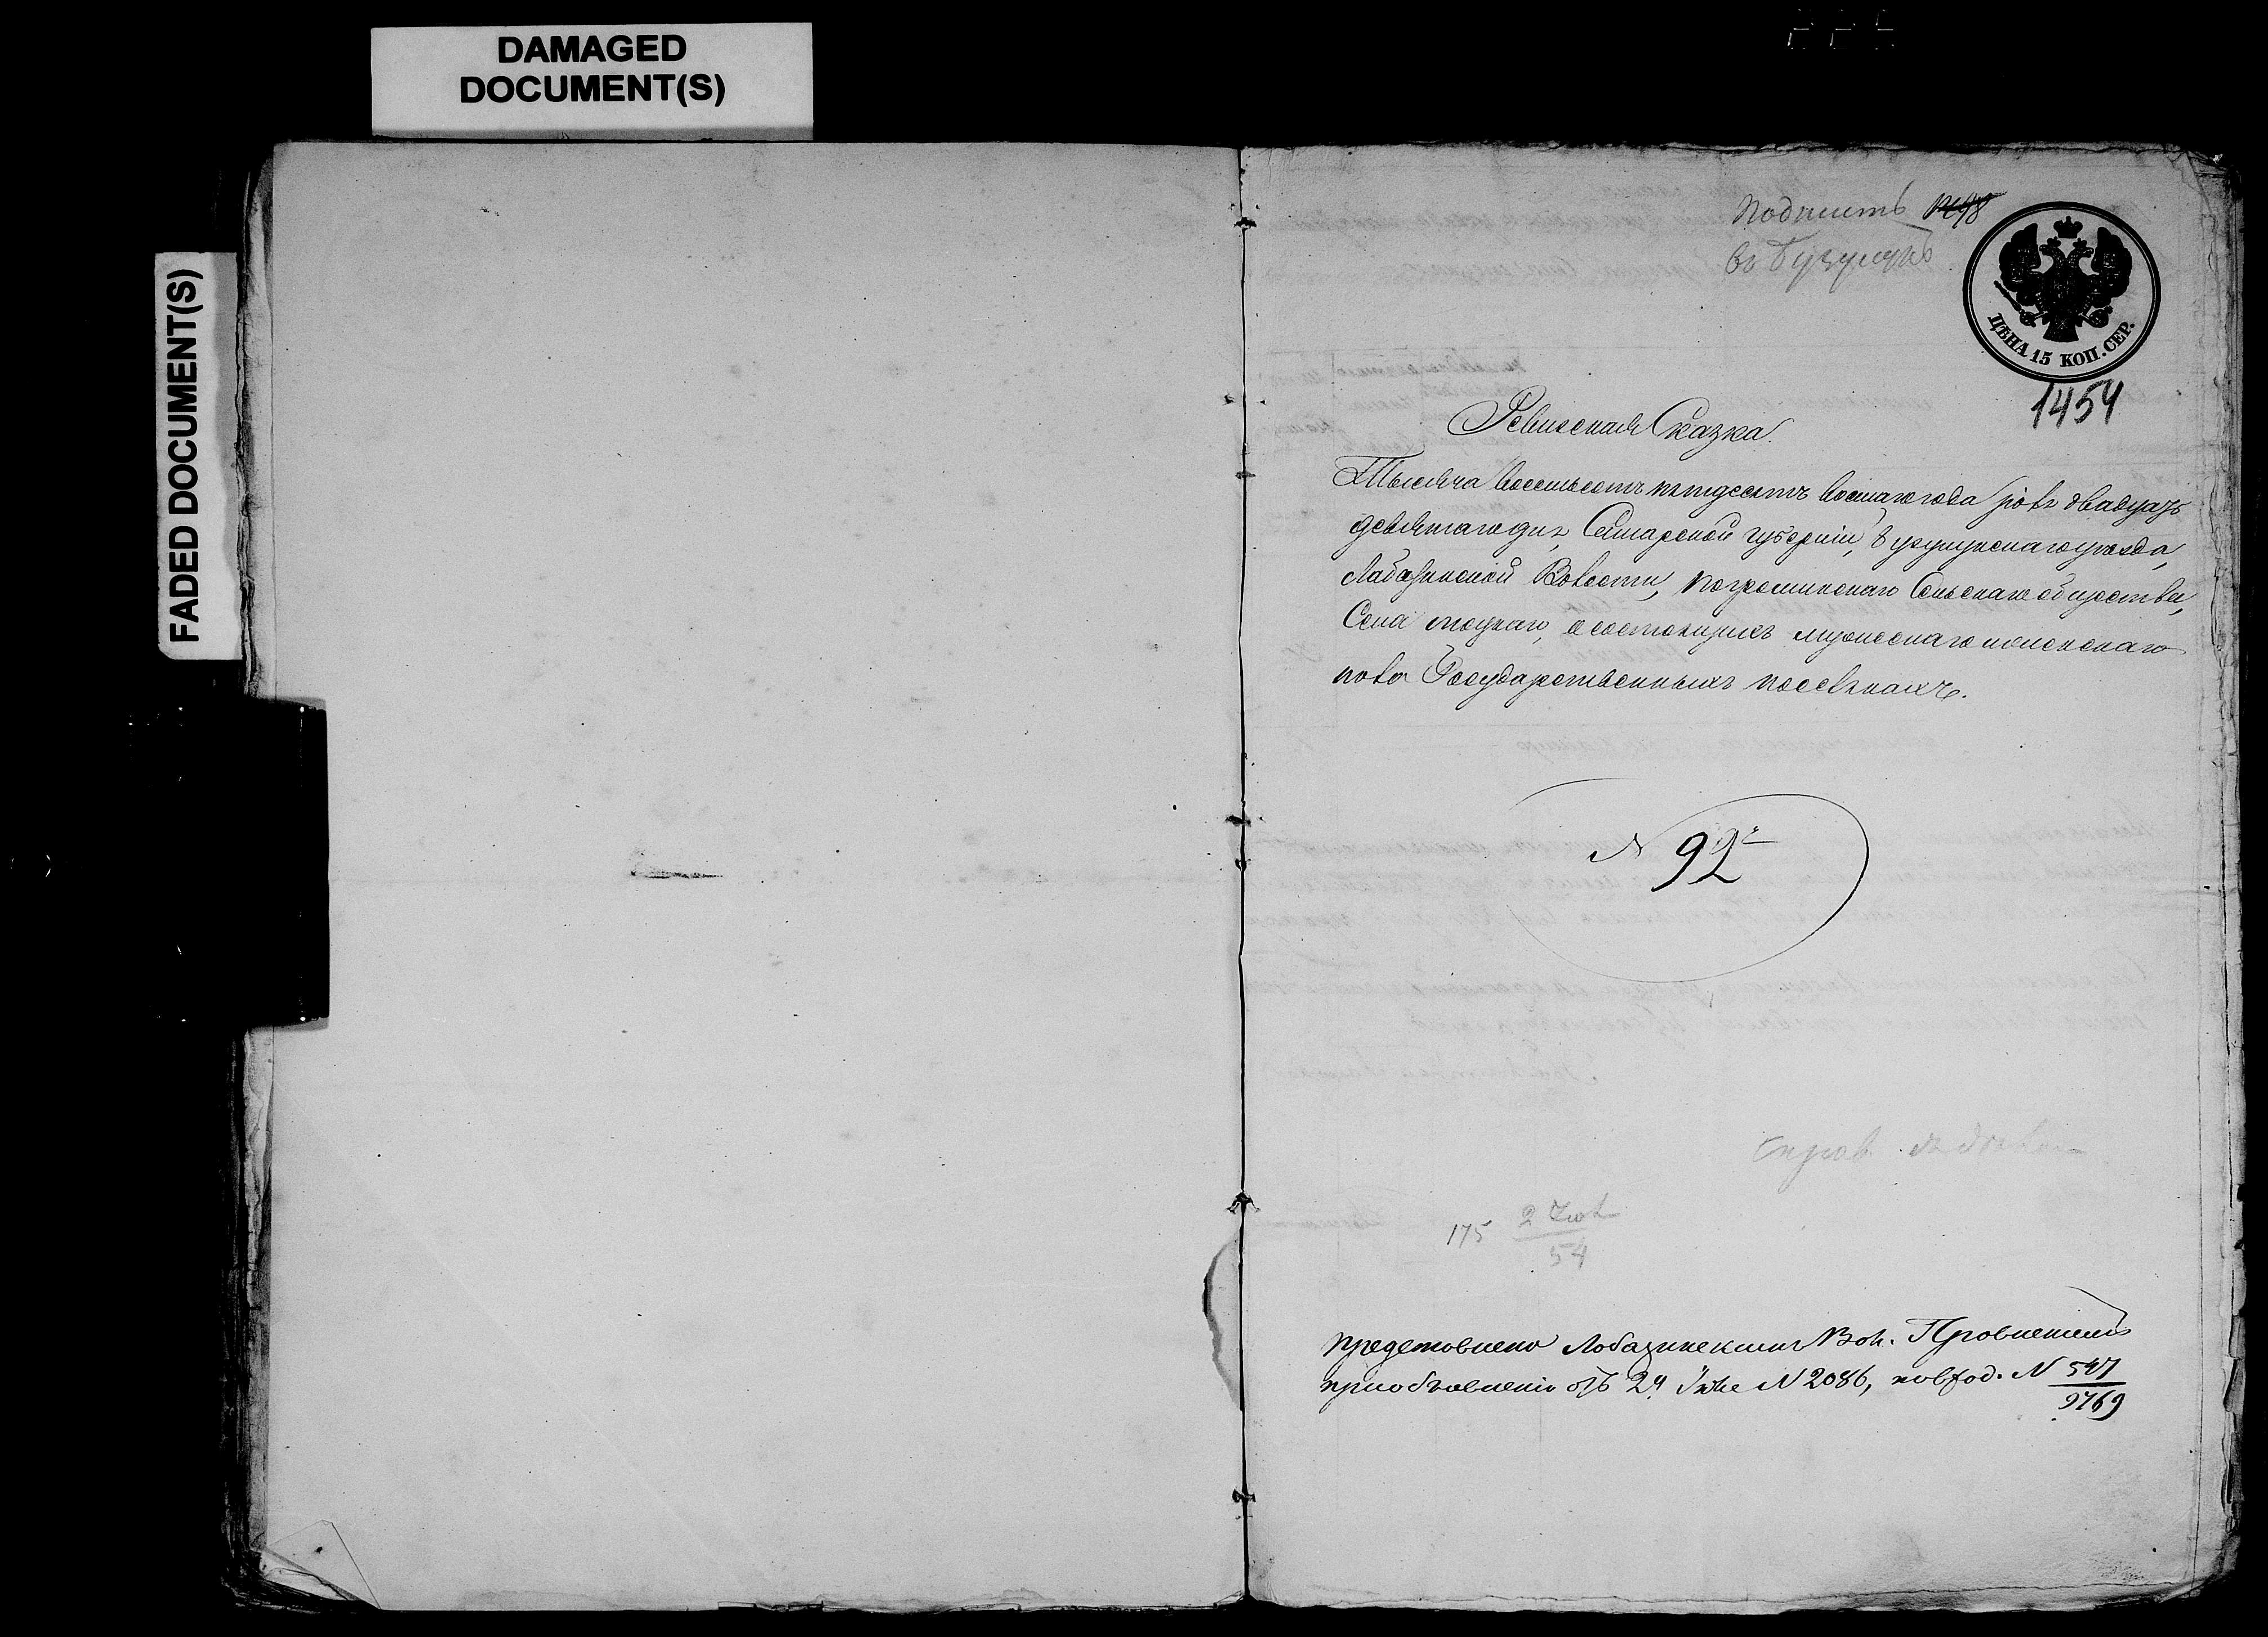 DAMAGED
DOCUMENT(S)
FADED DOCUMENT(S)
Подшить
въ Бузулукъ
ЦѢНА 15 КОП. СЕР.
1454
Ревизская Сказка.
Тысяча восемьсотъ пятдесятъ восмаго года двадцать
девятаго дня, Самарской губерніи, Бузулукскаго уѣзда,
Лабазинской Волости, Погроминскаго Сельскаго общества,
Села Тоцкаго, о состоящихъ мужескаго и женскаго
пола Государственныхъ
N 92
175 2
54
представлено Лобазинскимъ Вол. Правленіемъ
при объявленіи отъ 24 N 2086, по вход. N 547
9769